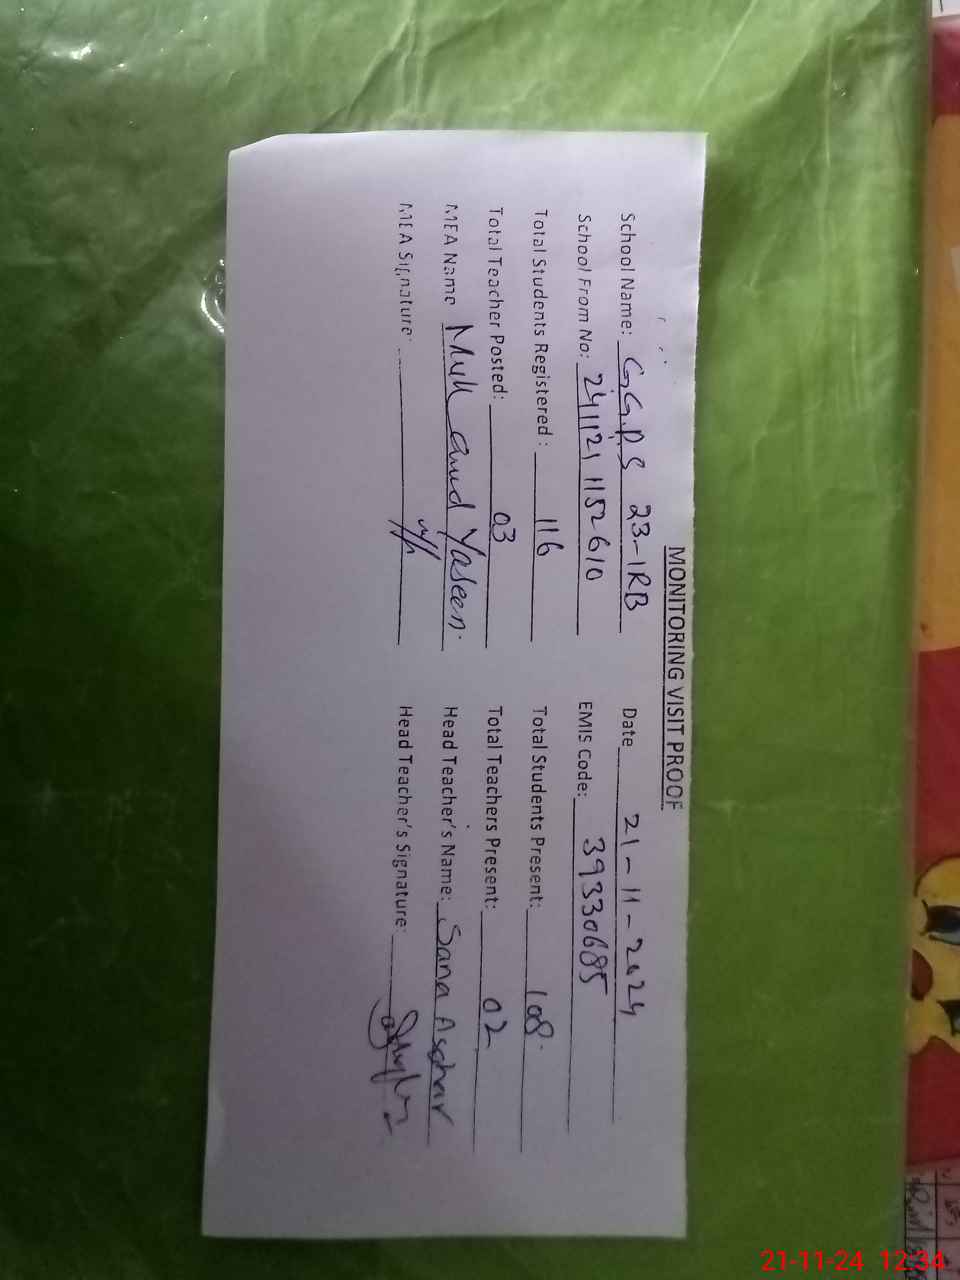 MONITORING VISIT PROOF
School Name: G.G.P.S 23-1RB Date 21-11-2024
School From No: 241121 1152610 EMIS Code: 39330685
Total Students Registered : 116 Total Students Present: 108.
Total Teacher Posted: 03 Total Teachers Present: 02
MEA Name Yaseen. Head Teacher's Name: Sana Asghar
MEA Signature: Head Teacher's Signature:
21-11-24 12:34